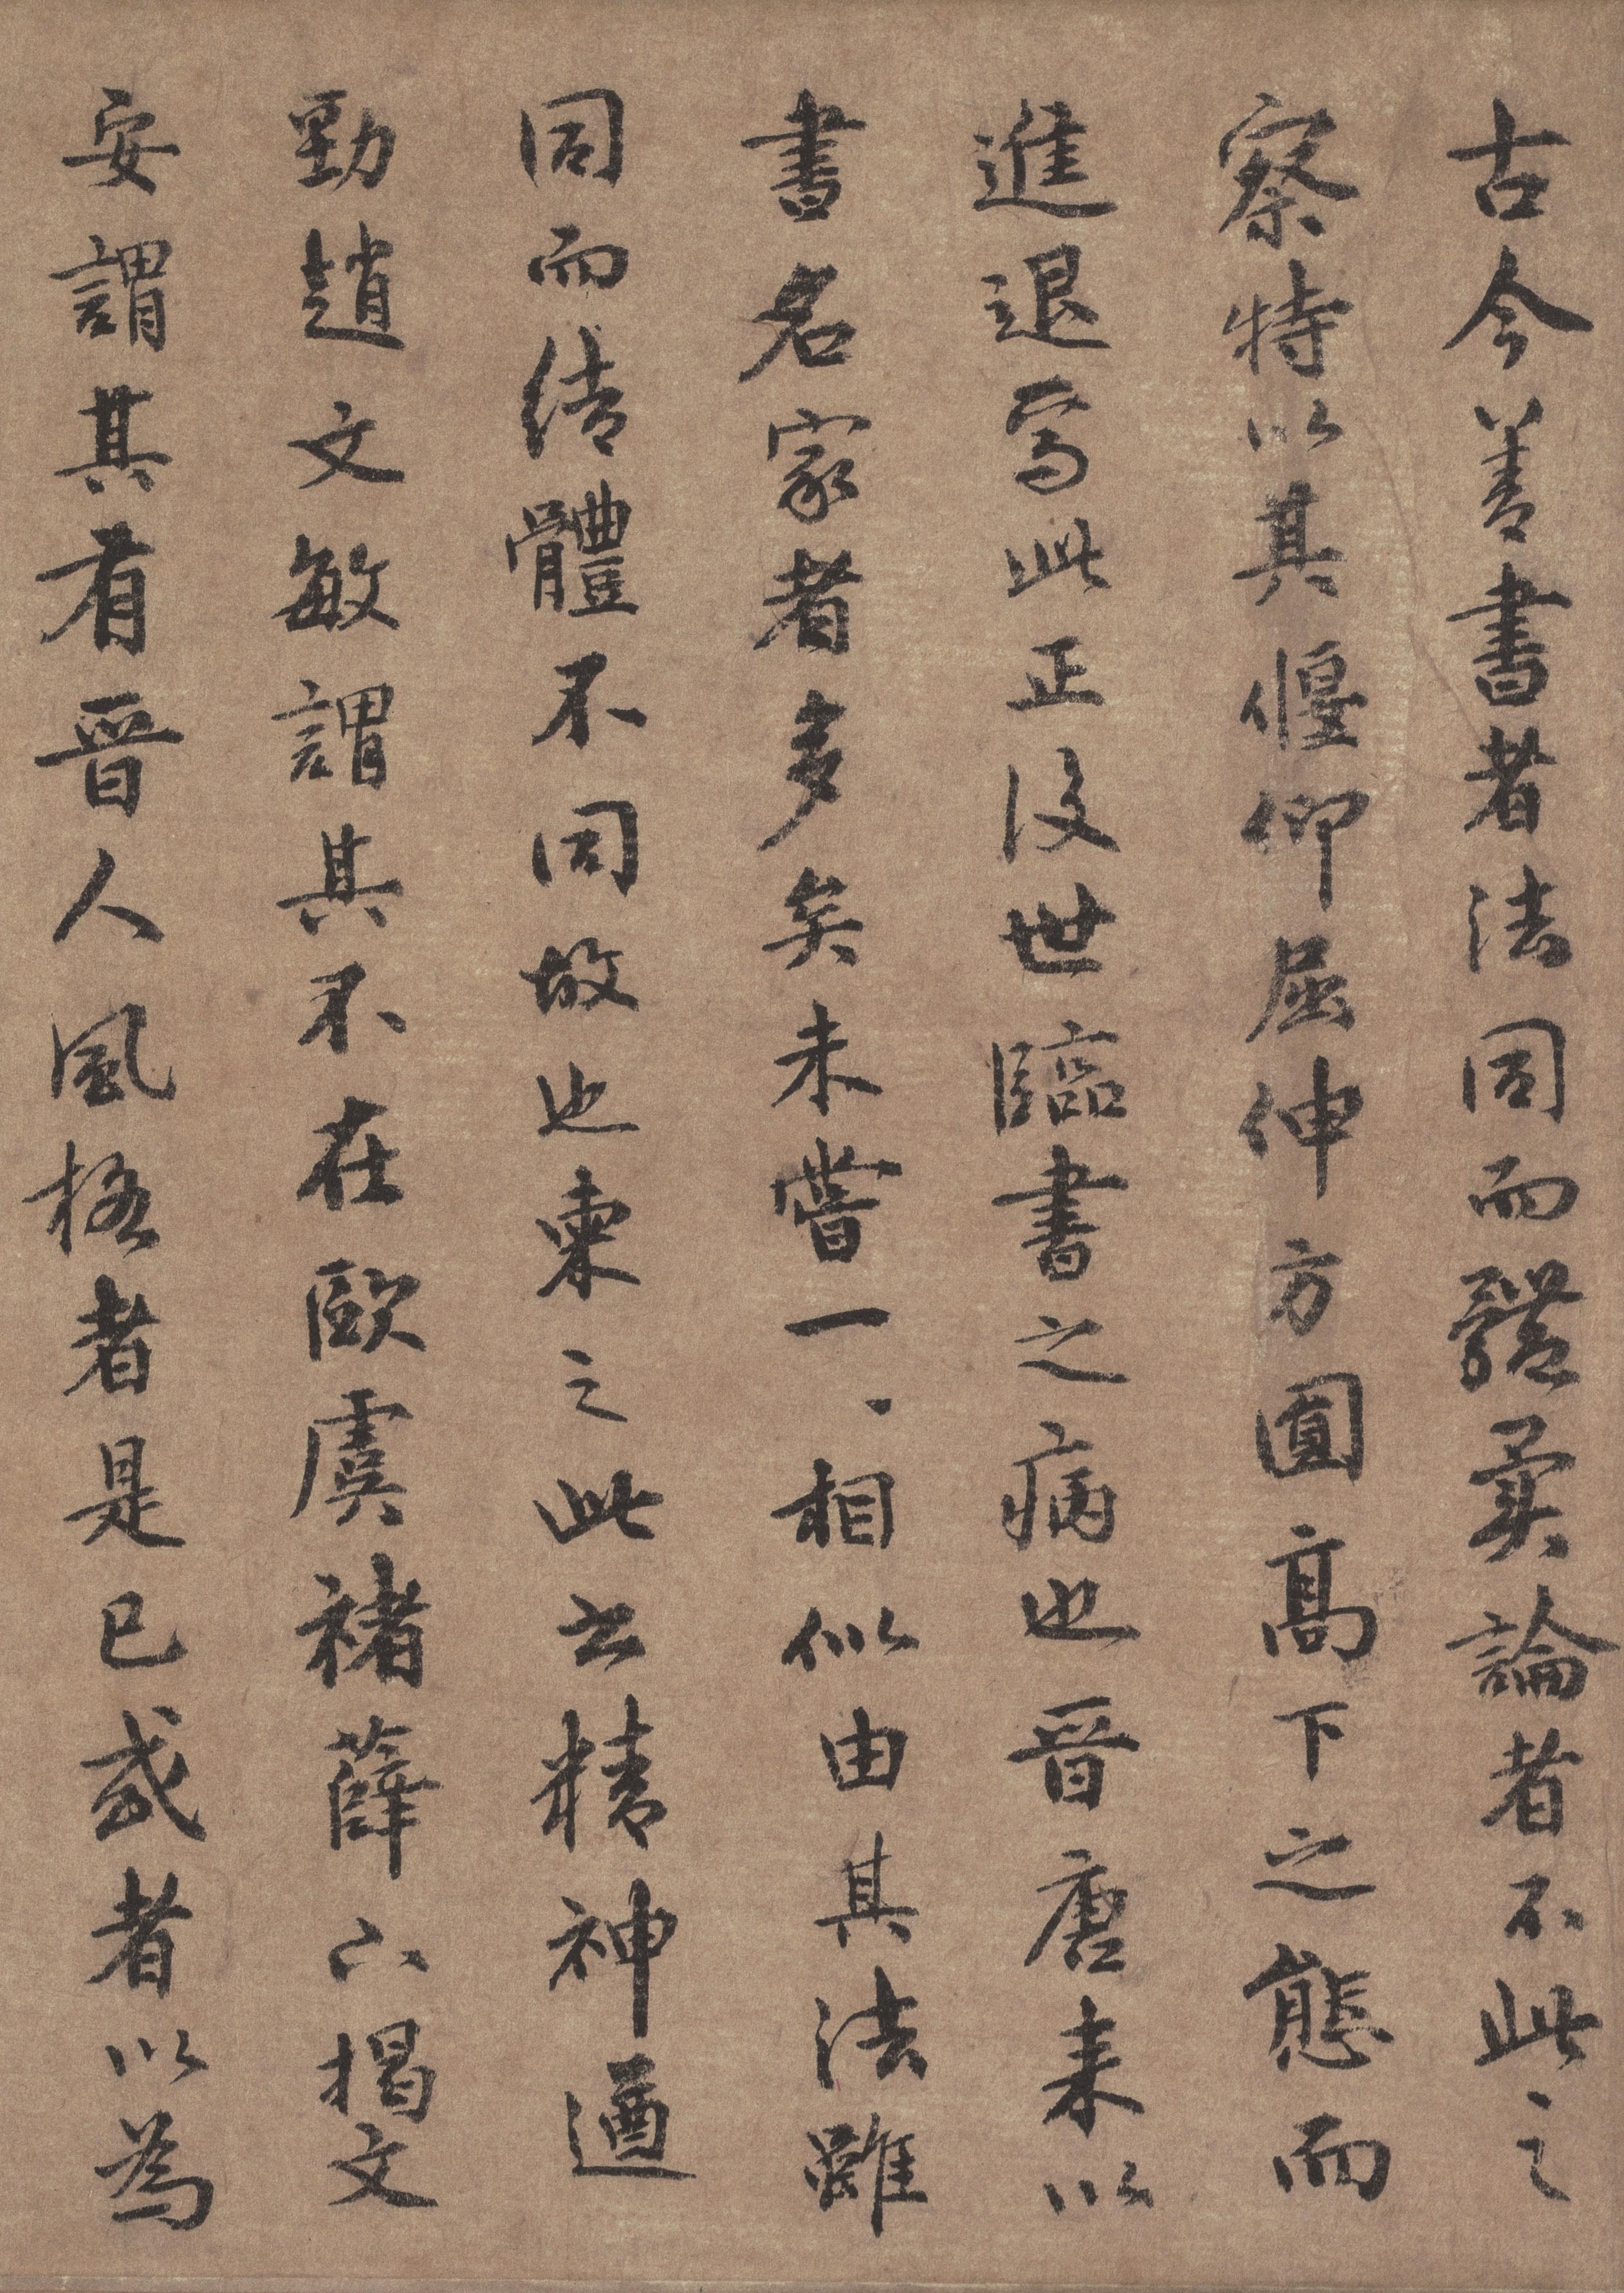 古今善書者法同而體異論者不此之
察特以其偃仰屈伸方圓高下之態而
進退焉此正後世臨書之病也晉唐来以
書名家者多矣未嘗一一相似由其法雖
同而結體不同故也柬之此書精神遒
勁趙文敏謂其不在歐虞褚薛下揭文
安謂其有晉人風格者是已或者以為